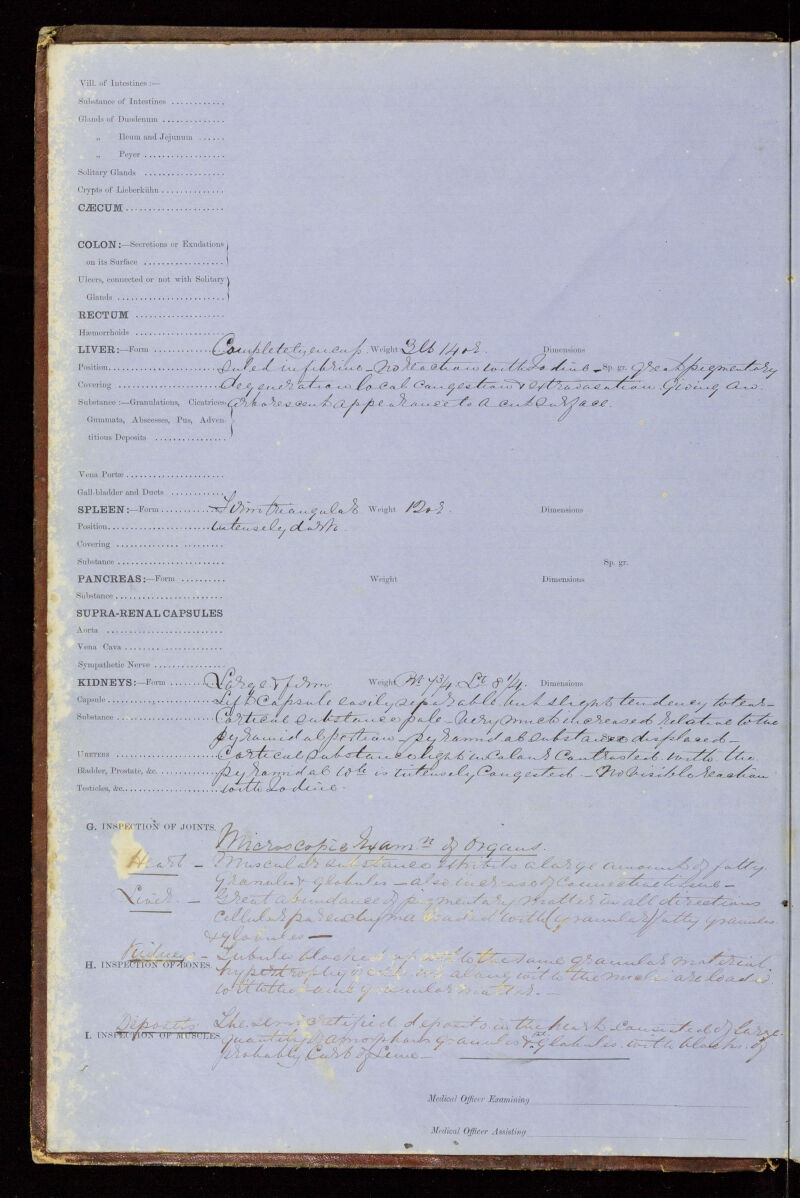 Vill. of Intestines :—
Substance of Intestines
Glands of Duodenum
„ Ileum and Jejunum
„ Peyer
Solitary Glands
Crypts of Lieberkühn
CÆCUM
COLON:—Secretions or Exudations
on its Surface
Ulcers, connected or not with Solitary
Glands
RECTUM
Hæmorrhoids
LIVER:—Form Completely encap Weight 3 lb 14 oz. Dimensions
Position suled in fibrine – no reaction with Iodine – Sp. gr. great pigmentary
Covering degeneration local congestion & extravasation. Giving an
Substance :—Granulations, Cicatrices arborescent appearance to a cut surface.
Gummata, Abscesses, Pus, Adven-
titious Deposits
Vena Portæ
Gall-bladder and Ducts
SPLEEN:—Form Firm triangular Weight 12 oz. Dimensions
Position intensely dark.
Covering
Substance Sp. gr.
PANCREAS:—Form Weight Dimensions
Substance
SUPRA-RENAL CAPSULES
Aorta
Vena Cava
Sympathetic Nerve
KIDNEYS:—Form Large & firm Weight Rt 7 3/4 Lt 8 1/4 Dimensions
Capsule Left Capsule easily separable but slight tendency to tear –
Substance Cortical substance pale – very much increased relative to the
pyramidal portion – pyramidal substance displaced –
Ureters Cortical substance light in colour Contrasted with the
Bladder, Prostate, &c. pyramidal wh is intensely Congested – No visible reaction
Testicles, &c. with Iodine.
G. INSPECTION OF JOINTS.
Microscopic Examn of Organs.
Heart – Muscular substance exhibits a large amount of fatty
granules & globules – also increase of connective tissue –
Liver. – Great abundance of pigmentary matter in all directions
cellular parenchyma loaded with granular fatty granules
& globules –
Kidneys – Tubules blocked up with the same granular material
H. INSPECTION OF BONES. hypertrophy along with the loaded
with the same granular matter. –
Deposits The deposits in the heart consisted of large
I. INSPECTION OF MUSCLES quantity of amorphous granules & globules with blocks of
probably Carb of Lime –
Medical Officer Examining
Medical Officer Assisting